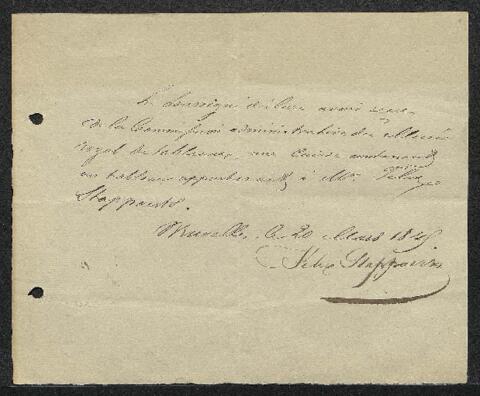 Le soussigné déclare avoir reçu
de la Commission administrative du Musée
royal de tableaux, une Caisse contenant
un tableau appartenant à Mr. Félix
Stappaerts.
Bruxelles, le 20 Mars 184
Félix Stappaerts